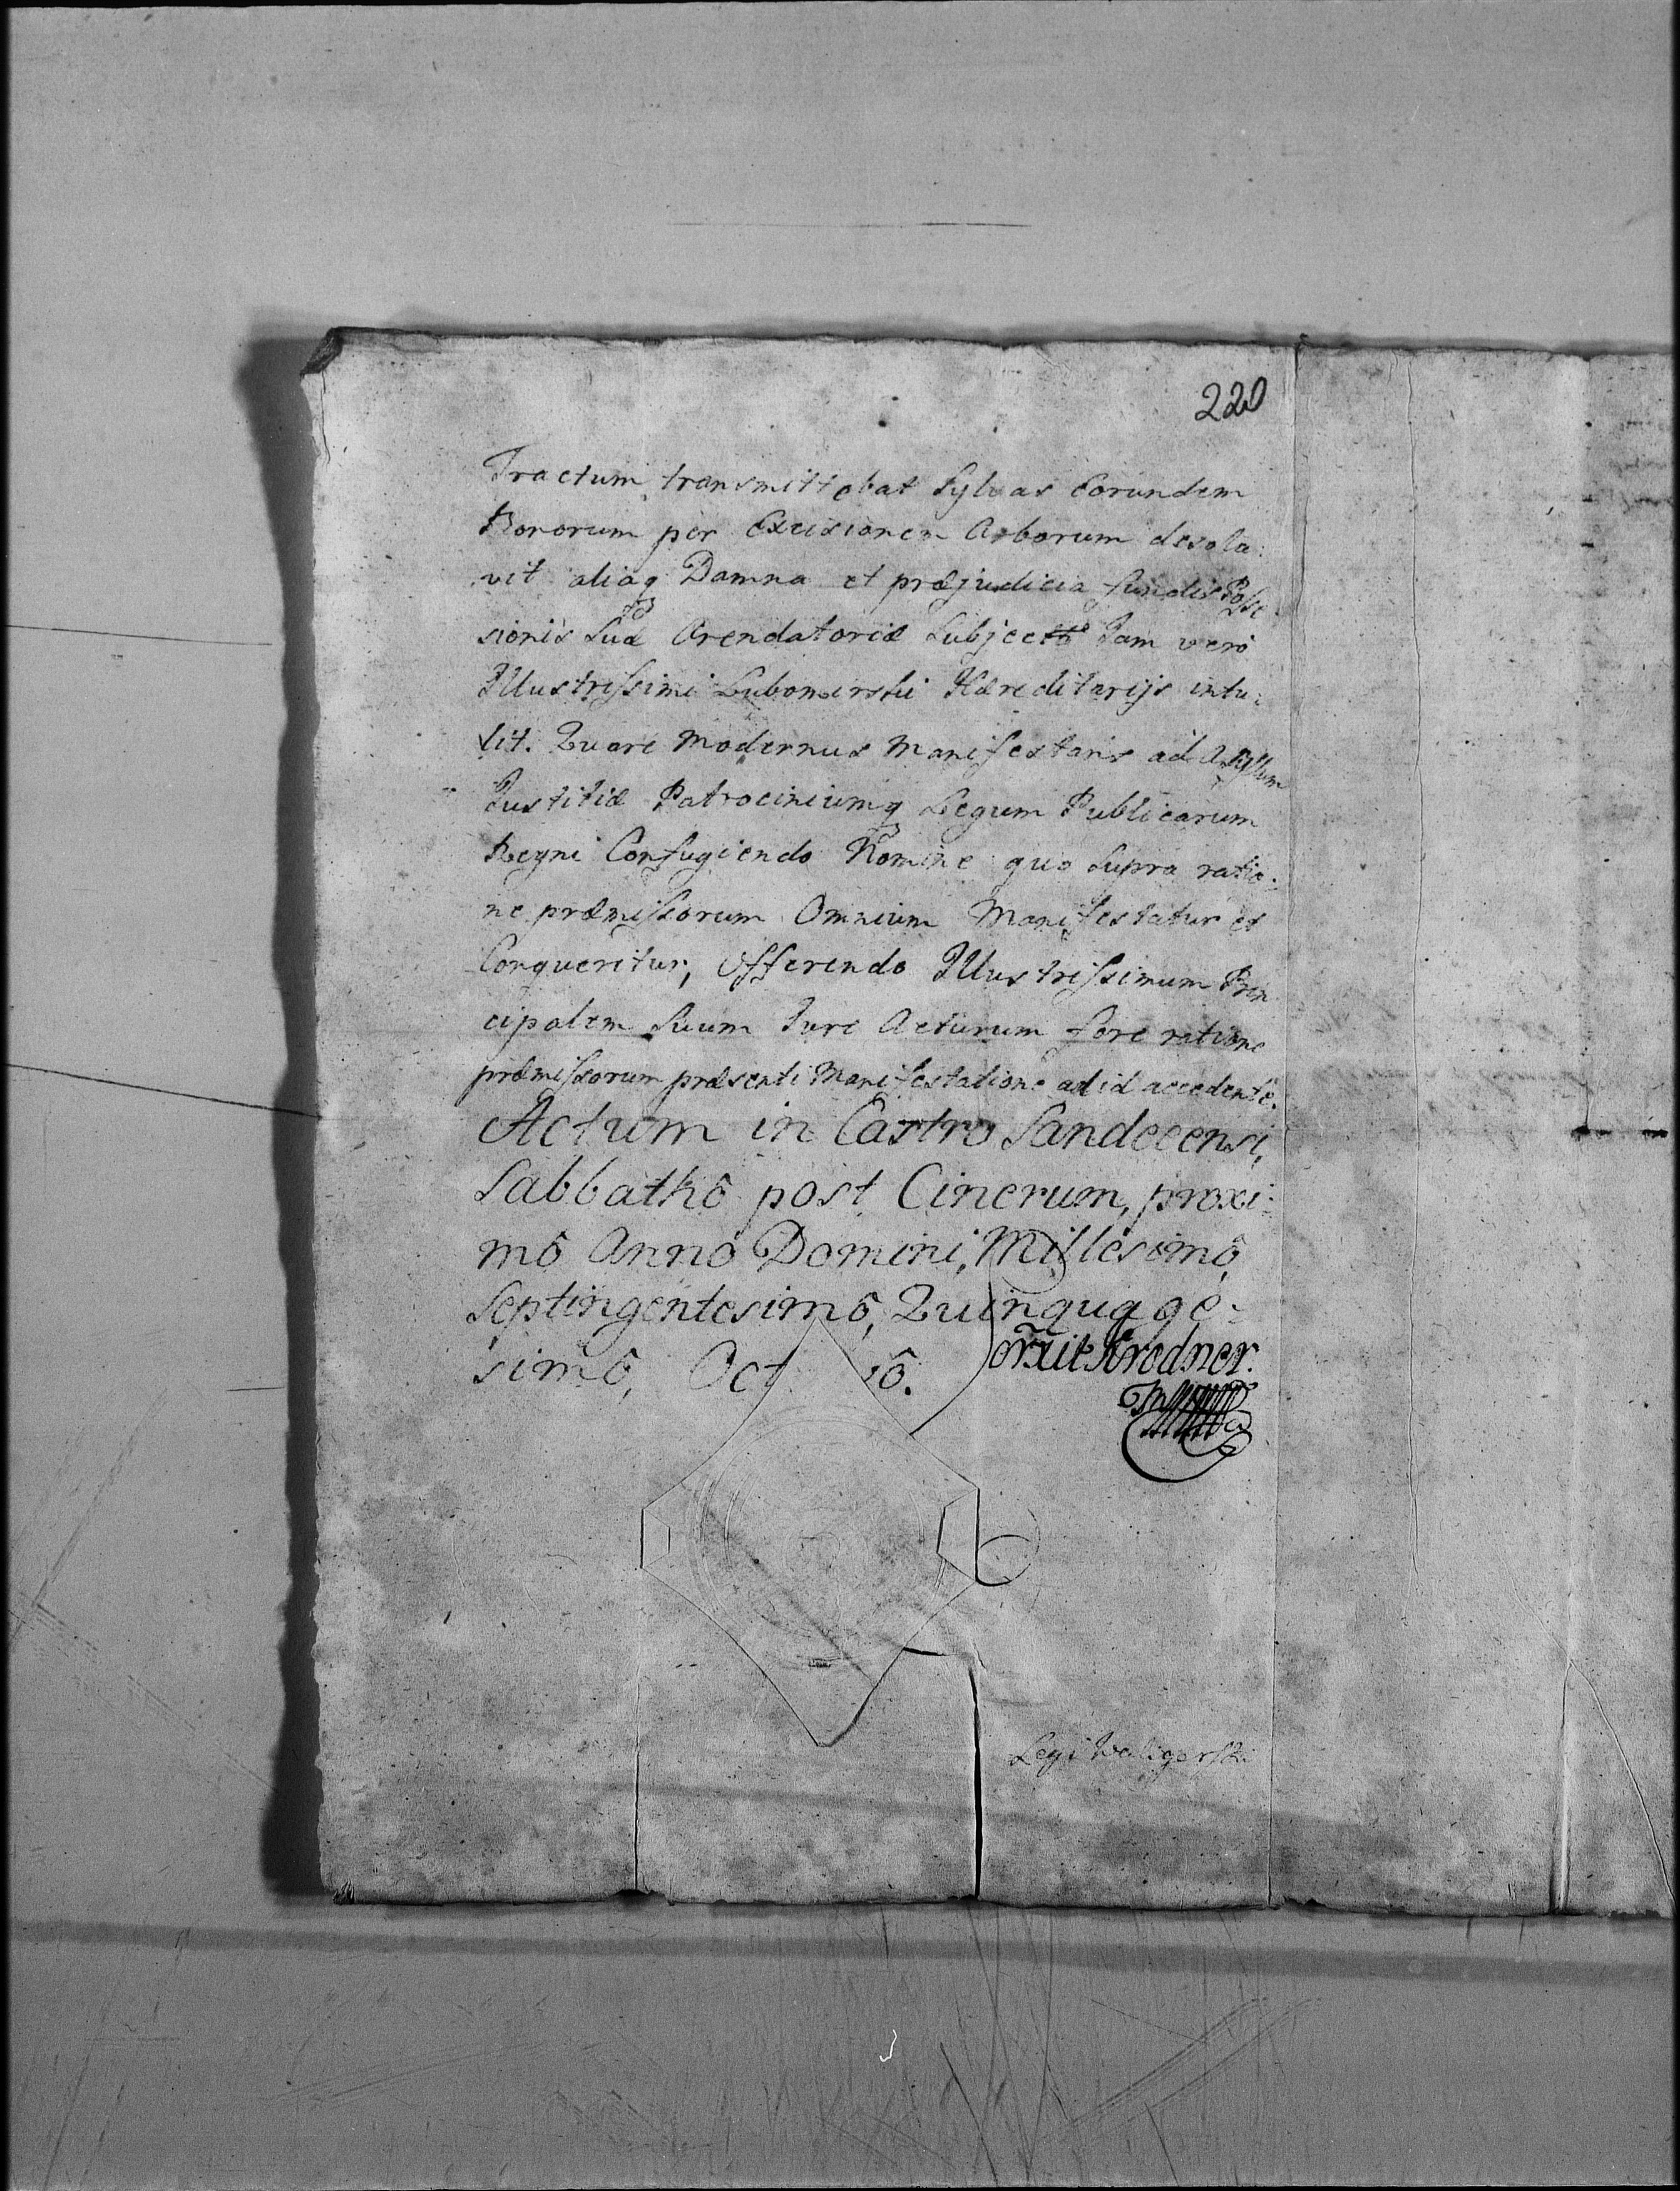 220
Tractum transmittebat Sylvas Eorundem
Bonorum per Excisionem Arborum desola:
vit aliaq Damna et præjudicia fundis Posse
sionis Suæ Arendatoriæ Subjectis Jam vero
Illustrissimi Lubomirski Hæreditarijs intu:
lit. Quare Modernus Manifestans ad Asyllum
Justitiæ Patrociniumq Legum Publicarum
Regni Confugiendo Nomine quo Supra ratio:
ne præmissorum Omnium Manifestatur et
Conqueritur, Offerendo Illustrissimum Prin
cipalem Suum Jure Acturum fore ratione
præmissorum præsenti Manifestatione ad id accedente.
Actum in Castro Sandecensi,
Sabbathô post Cinerum, proxi:
mô Annô Domini, Millesimô,
Septingentesimô, Quinquage:
simô, Oct ô.
Legi Waligorski